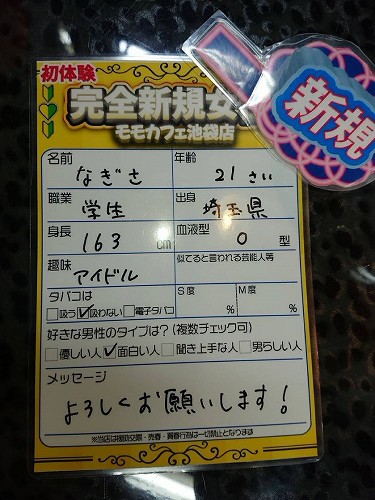 初体験
完全新規女
モモカフェ池袋店
新規
名前 なぎさ 年齢 21さい
職業 学生 出身 埼玉県
身長 163 cm 血液型 O 型
趣味 アイドル 似てると言われる芸能人等
タバコは S度 M度
□吸う ☑吸わない □電子タバコ % %
好きな男性のタイプは?(複数チェック可)
□優しい人 ☑面白い人 □聞き上手な人 □男らしい人
メッセージ
よろしくお願いします!
※当店は援助交際・売春・買春行為は一切禁止となります